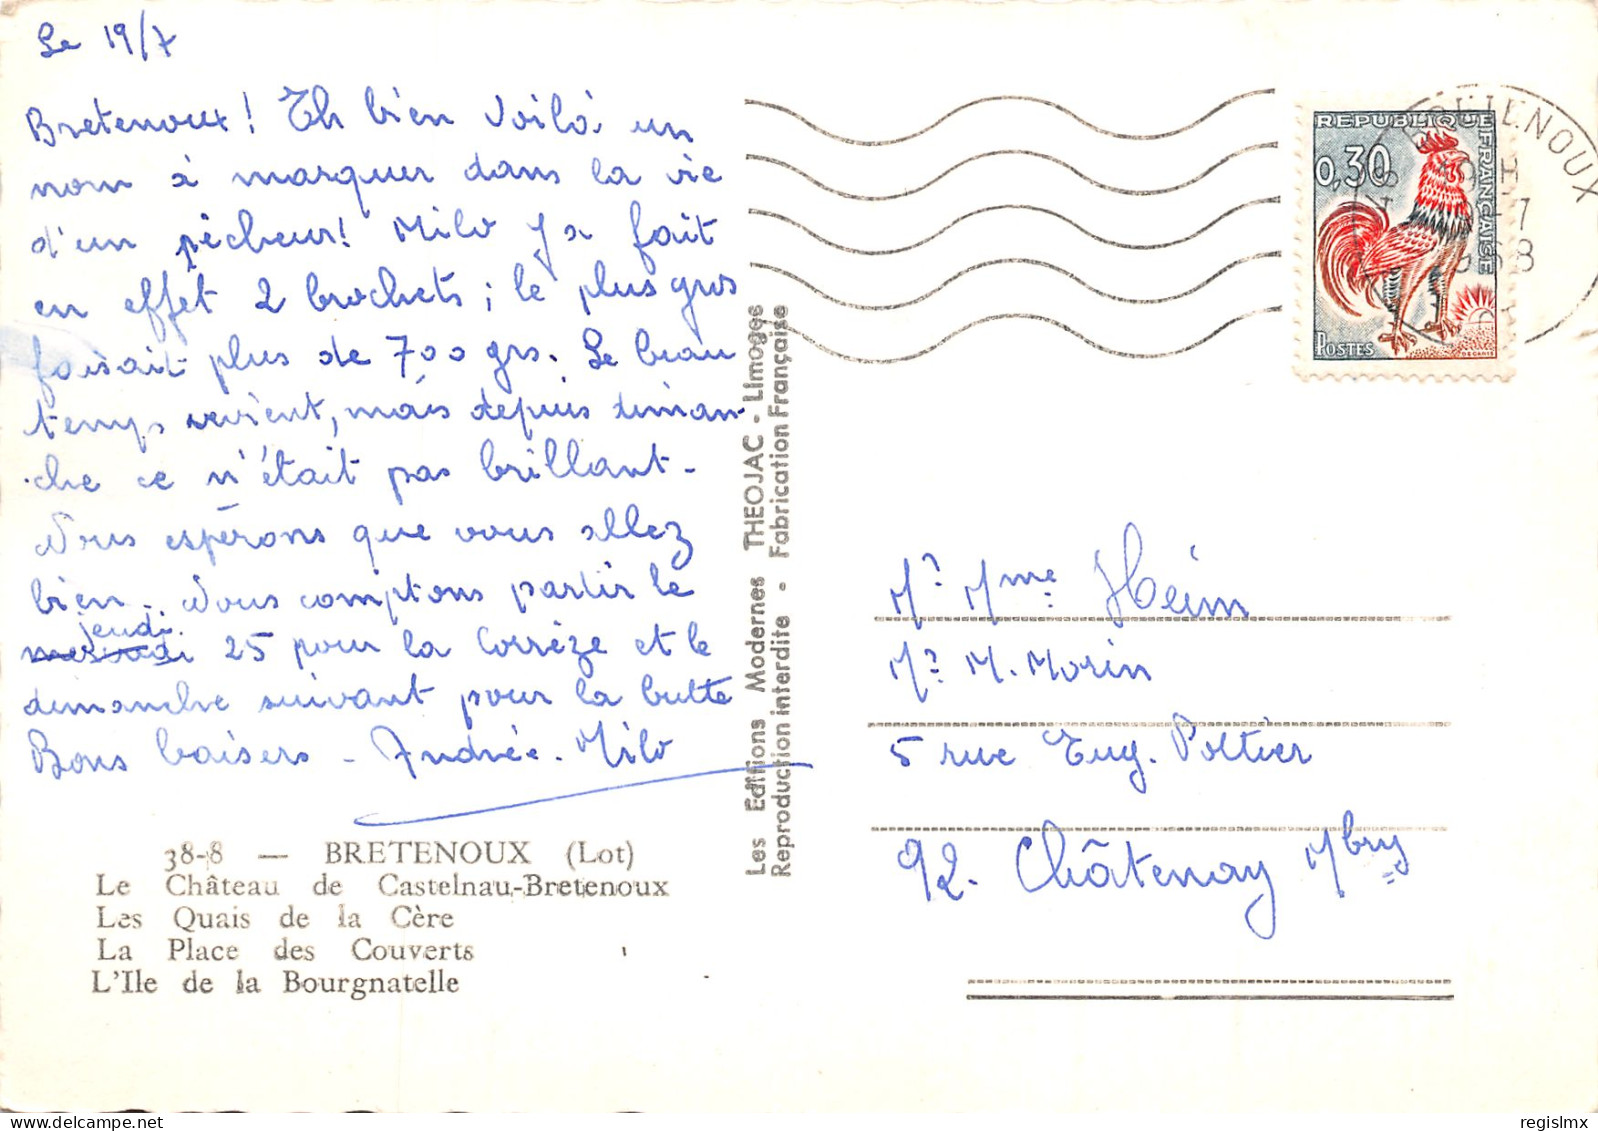 Le 19/7
Bretenoux! Eh bien voilà un
nom à marquer dans la vie
d'un pêcheur! Milo y a fait
en effet 2 brochets; le plus gros
faisait plus de 700 grs. Le beau
temps revient, mais depuis diman-
che ce n'était pas brillant.
Nous espérons que vous allez
bien. Nous comptons partir le
jeudi
mercredi 25 pour la Corrèze et le
dimanche suivant pour la butte
Bons baisers - Andrée. Milo
38-8 — BRETENOUX (Lot)
Le Château de Castelnau-Bretenoux
Les Quais de la Cère
La Place des Couverts
L'Ile de la Bourgnatelle
Les Editions Modernes THEOJAC - Limoges
Reproduction interdite - Fabrication Française
REPUBLIQUE FRANÇAISE
0,30
POSTES
DECARIS
BRETENOUX
9H
9-7
1968
Mr Mme Heim
Mr M. Morin
5 rue Eug. Pottier
92. Châtenay Mbry
regislmx